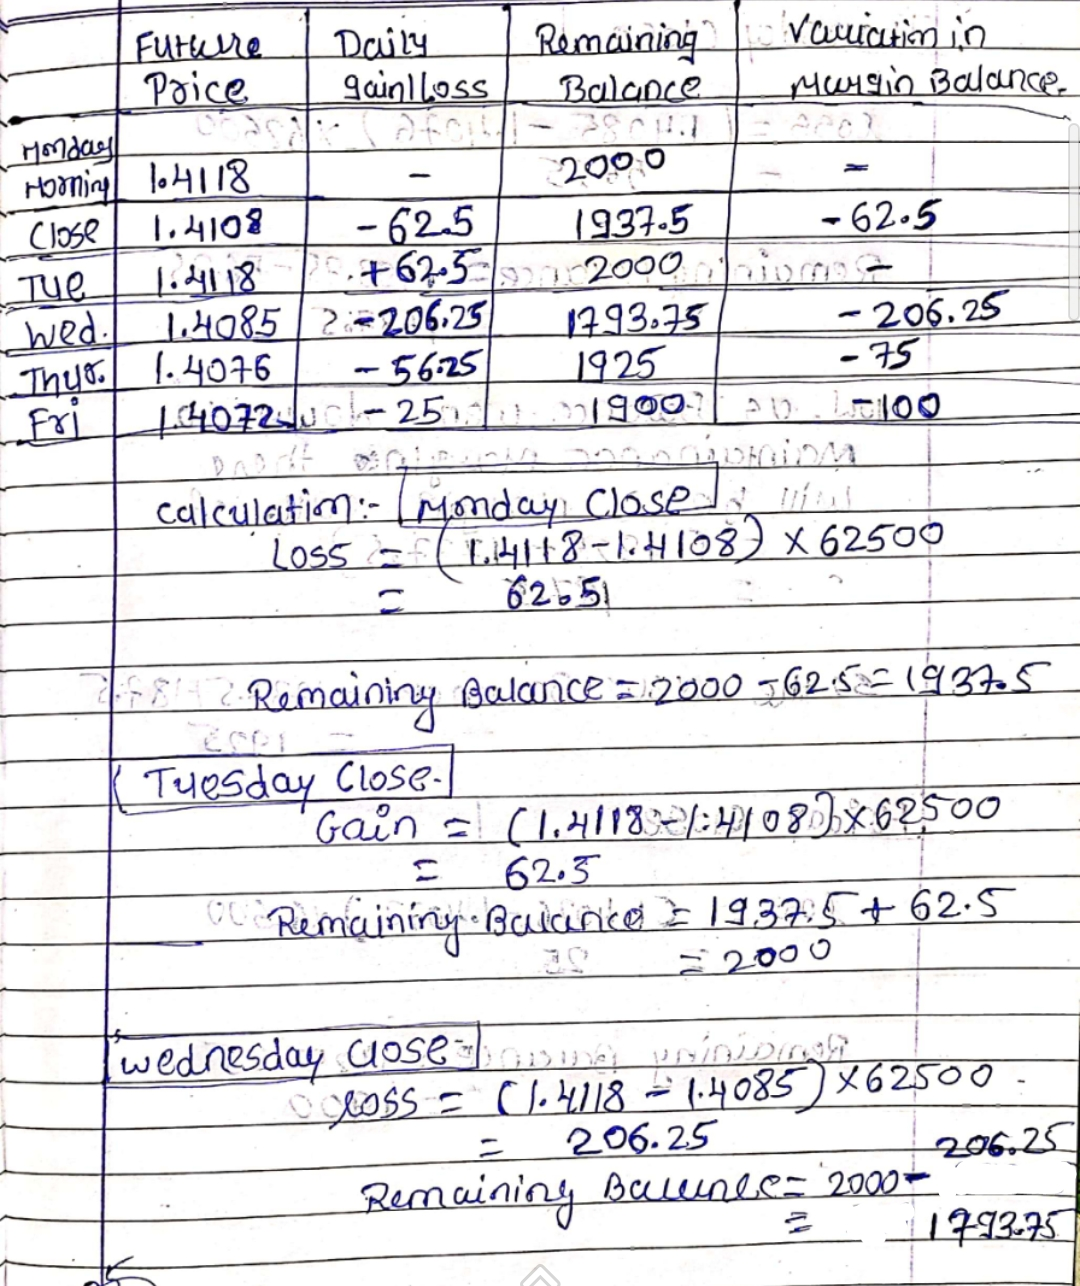 Future Daily Remaining Variation in
Price gain/Loss Balance Margin Balance.
Monday
Morning 1.4118 - 2000 -
Close 1.4108 -62.5 1937.5 -62.5
Tue 1.4118 +62.5 2000 -
Wed. 1.4085 -206.25 1793.75 -206.25
Thur. 1.4076 -56.25 1925 -75
Fri 1.4072 -25 1900 -100
Calculation:- Monday Close
Loss = (1.4118-1.4108) X 62500
= 62.5
Remaining Balance = 2000 - 62.5 = 1937.5
Tuesday Close-
Gain = (1.4118-1.4108) X 62500
= 62.5
Remaining Balance = 1937.5 + 62.5
= 2000
Wednesday Close-
Loss = (1.4118 - 1.4085) X 62500
= 206.25 206.25
Remaining Balance = 2000 -
= 1793.75